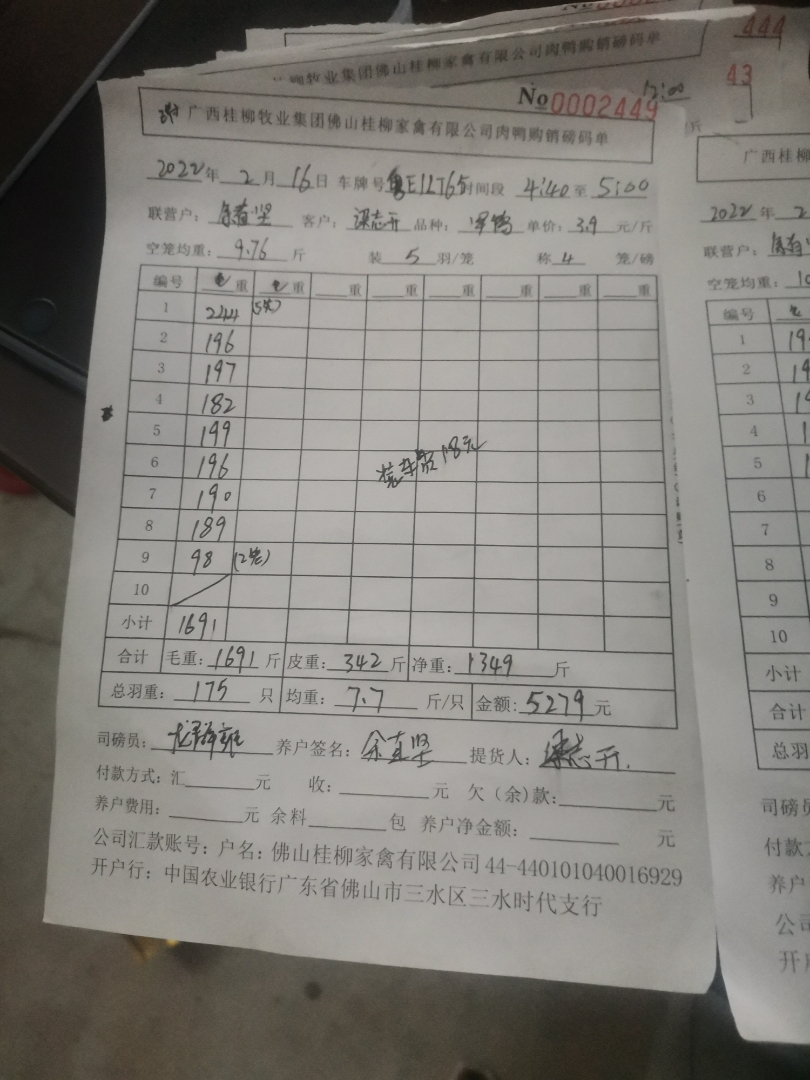 444
43
牧业集团佛山桂柳家禽有限公司肉鸭购销磅码单
12:00
№0002449
广西桂柳牧业集团佛山桂柳家禽有限公司肉鸭购销磅码单
2022年 2月 16日 车牌号 粤E1LT65 时间段 4:40 至 5:00
联营户: 余直坚 客户: 梁志开 品种: 单价: 3.9 元/斤
空笼均重: 9.76 斤 装 5 羽/笼 称 4 笼/磅
编号 毛重 毛重 重 重 重 重 重 重
1 244 (5笼)
2 196
3 197
4 182
5 199
6 196
7 190
8 189
9 98 (2笼)
10
装车费18元
小计 1691
合计 毛重: 1691 斤 皮重: 342 斤 净重: 1349 斤
总羽重: 175 只 均重: 7.7 斤/只 金额: 5279 元
司磅员: 养户签名: 余直坚 提货人: 梁志开.
付款方式: 汇 元 收: 元 欠(余)款: 元
养户费用: 元 余料 包 养户净金额: 元
公司汇款账号: 户名: 佛山桂柳家禽有限公司 44-440101040016929
开户行: 中国农业银行广东省佛山市三水区三水时代支行
广西桂柳
2022 年 2
联营户:
空笼均重:
编号
1
2
3
4
5
6
7
8
9
10
小计
合计
总羽
司磅员
付款
养户
公
开户